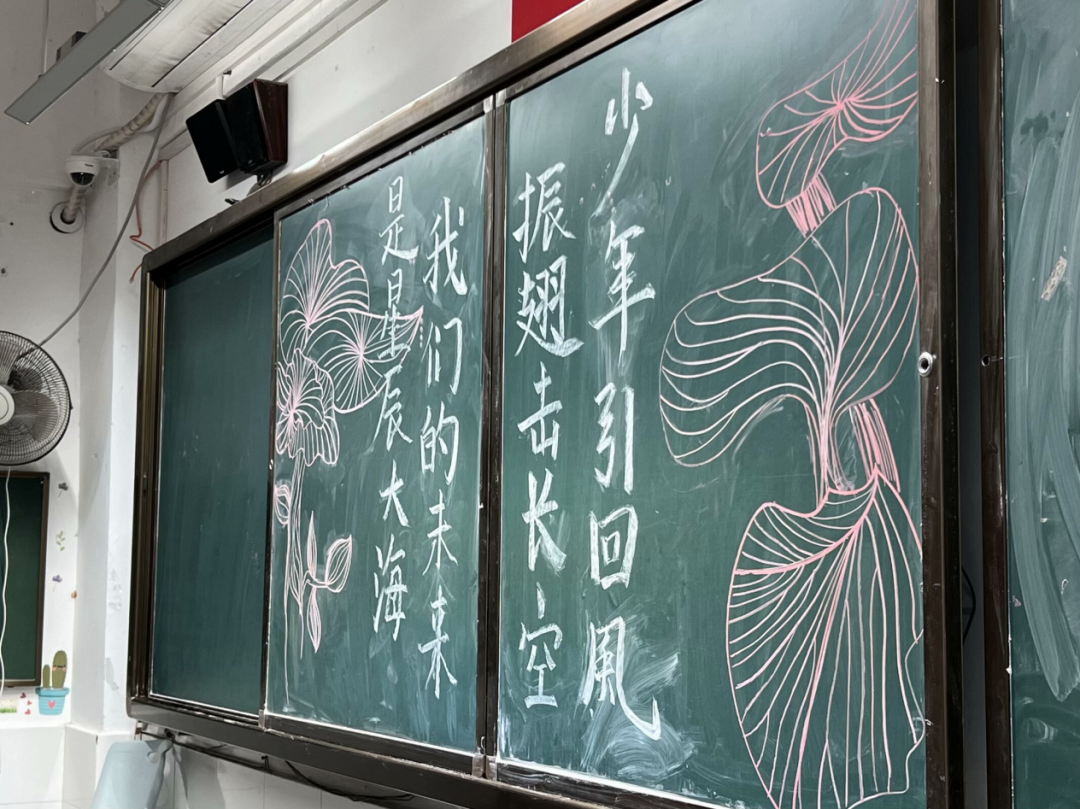 少年引回風
振翅击长空
我们的未来
是星辰大海